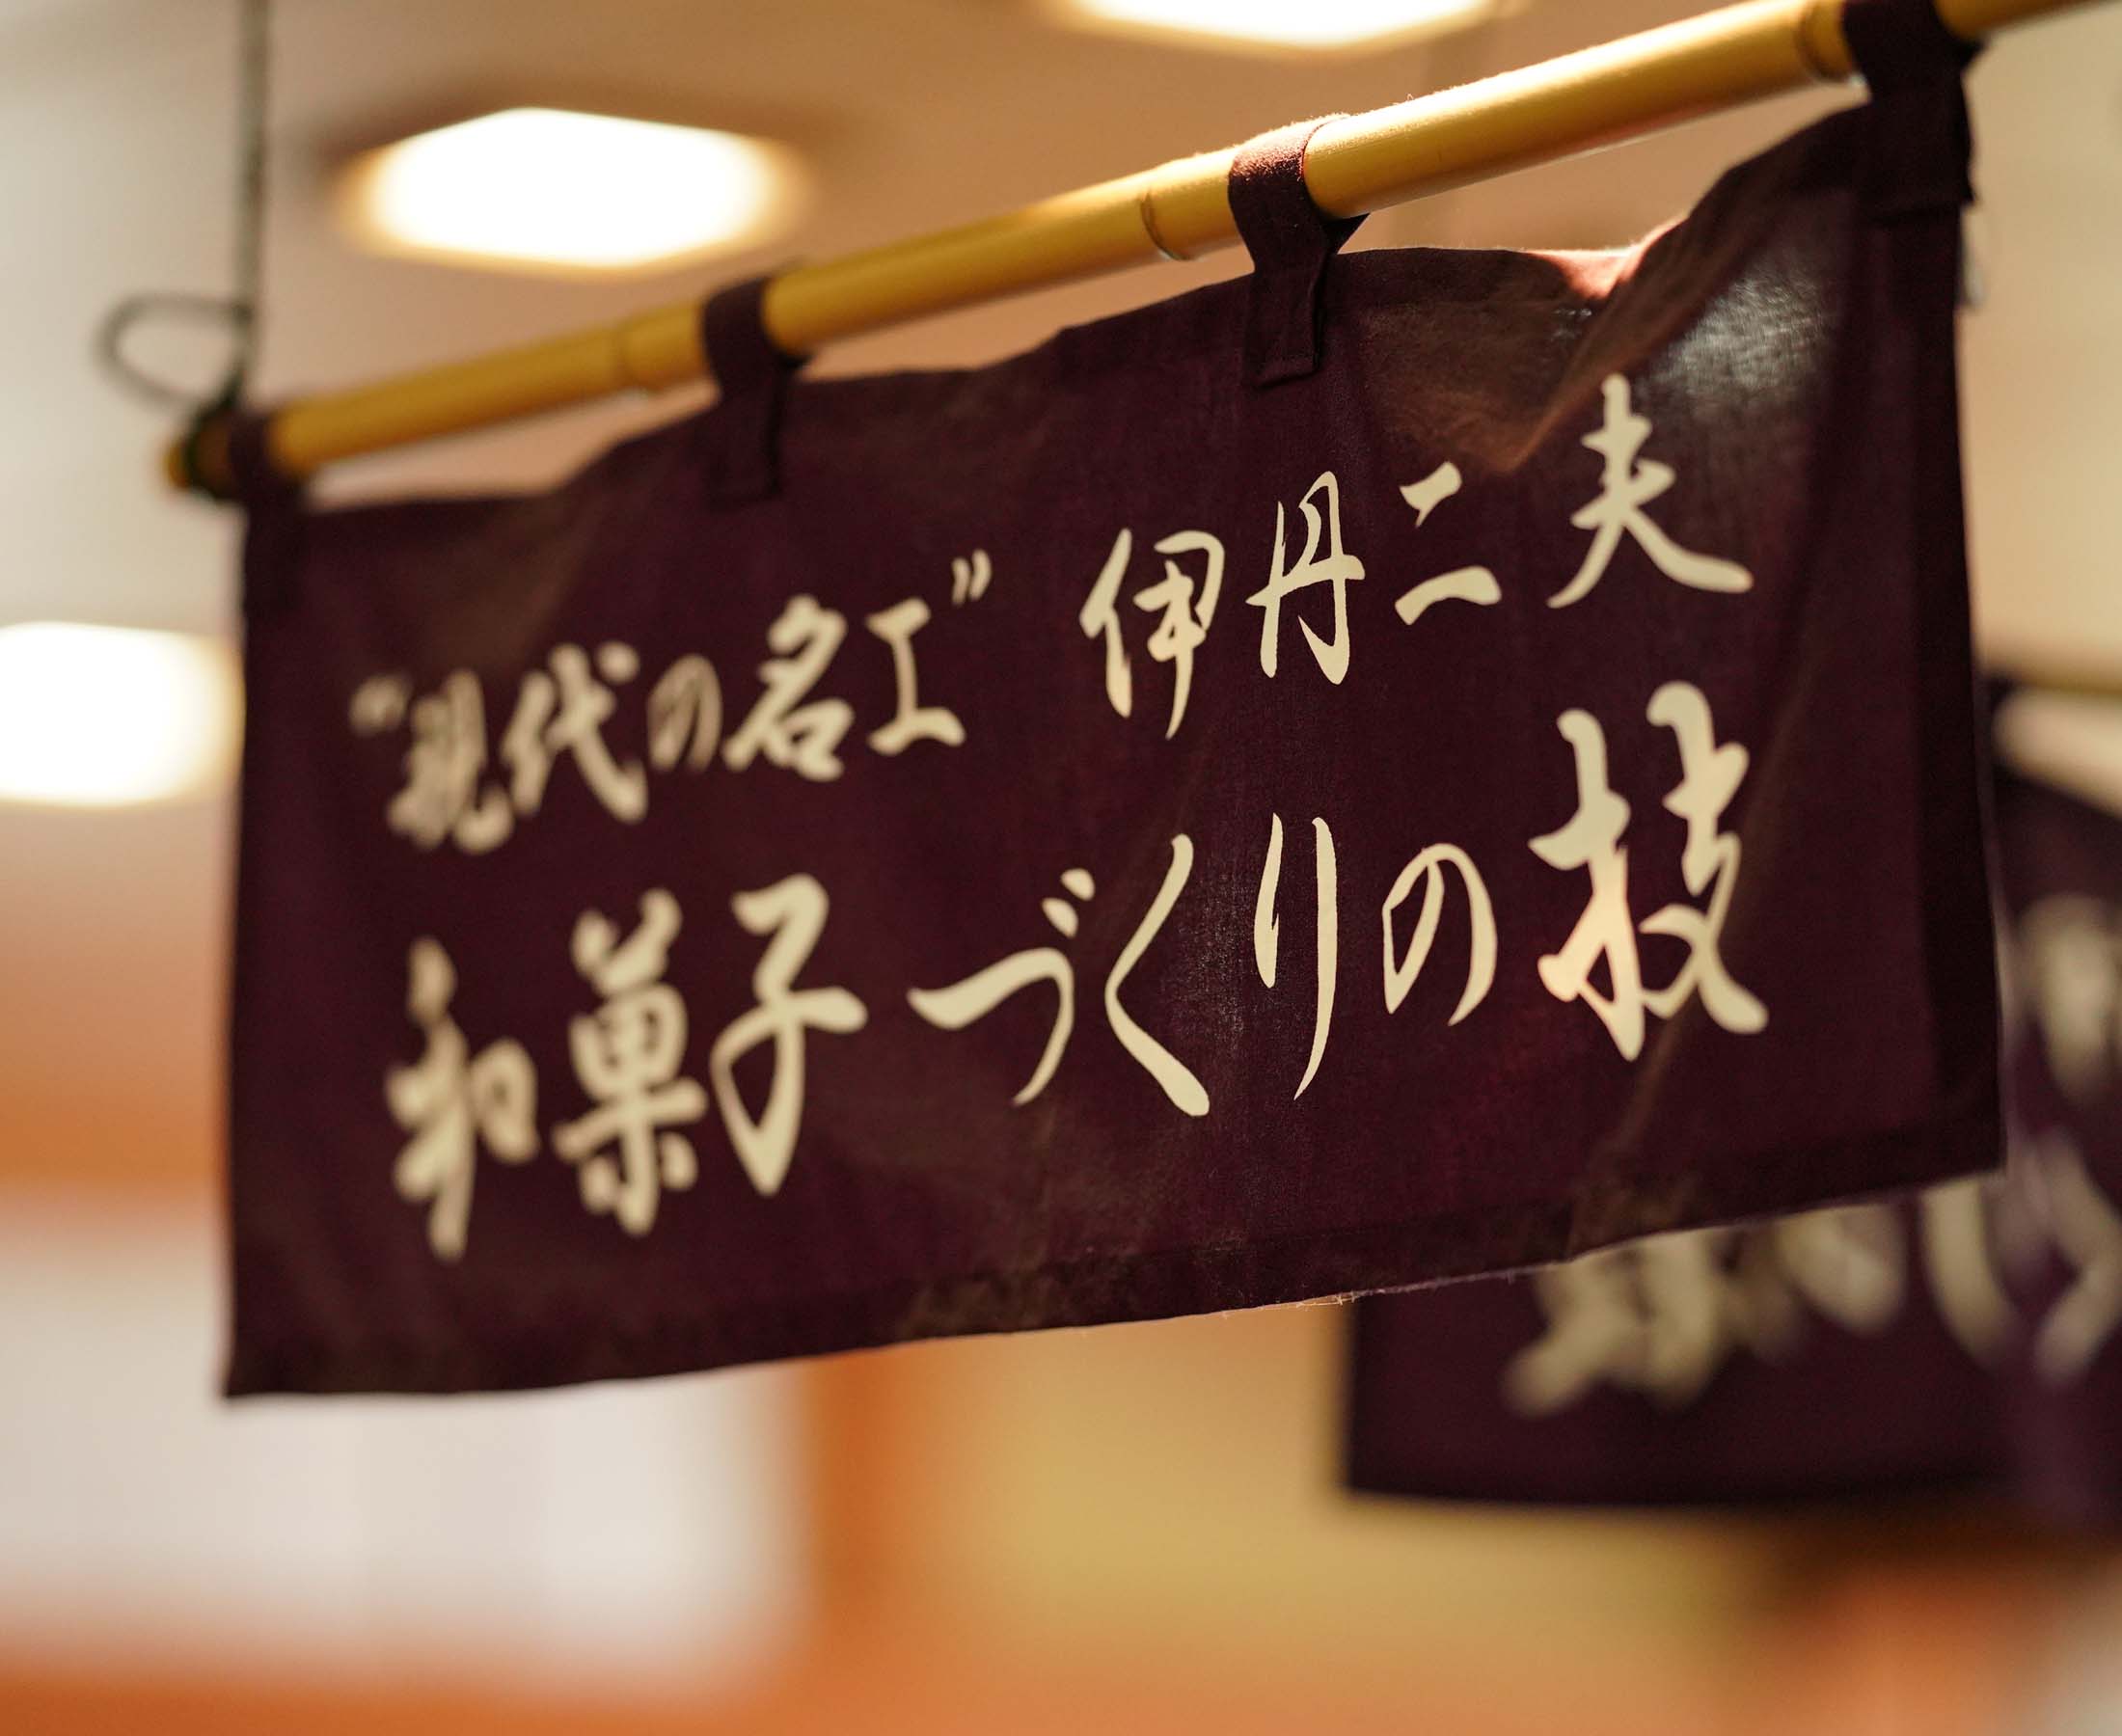 “現代の名工” 伊丹二夫
和菓子づくりの技